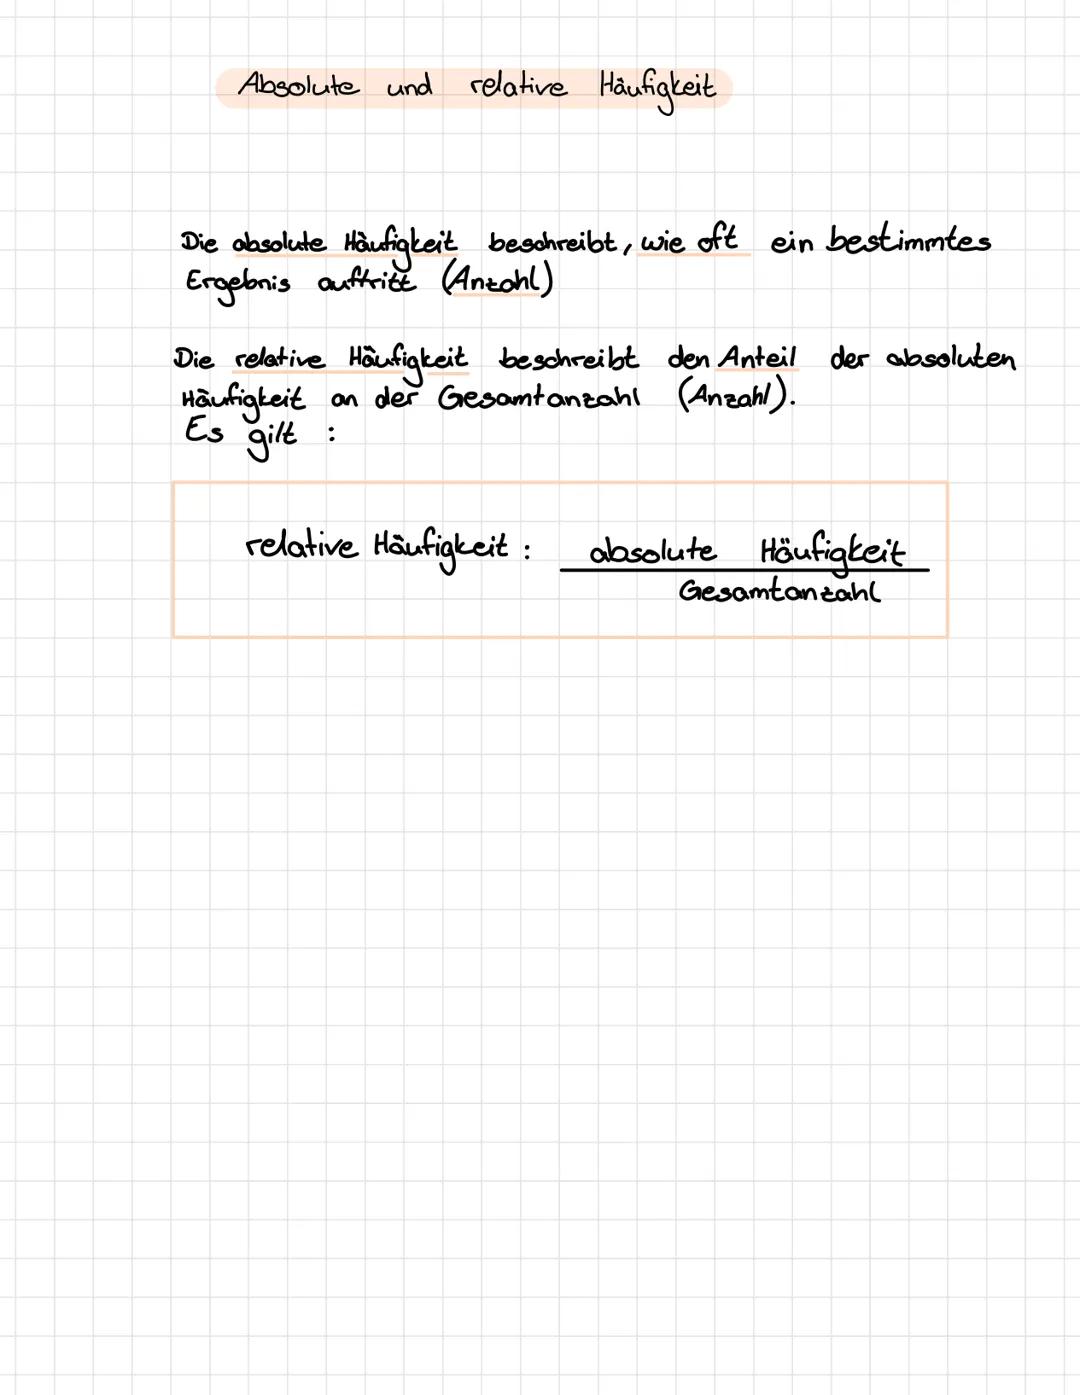 Absolute und relative Häufigkeit
Die absolute Häufigkeit beschreibt, wie oft ein bestimmtes
Ergebnis auftritt (Anzahl)
Die relative Häufigkeit beschreibt den Anteil der absoluten
Häufigkeit an der Gesamtanzahl (Anzahl).
Es gilt :
relative Häufigkeit : absolute Häufigkeit
Gesamtanzahl